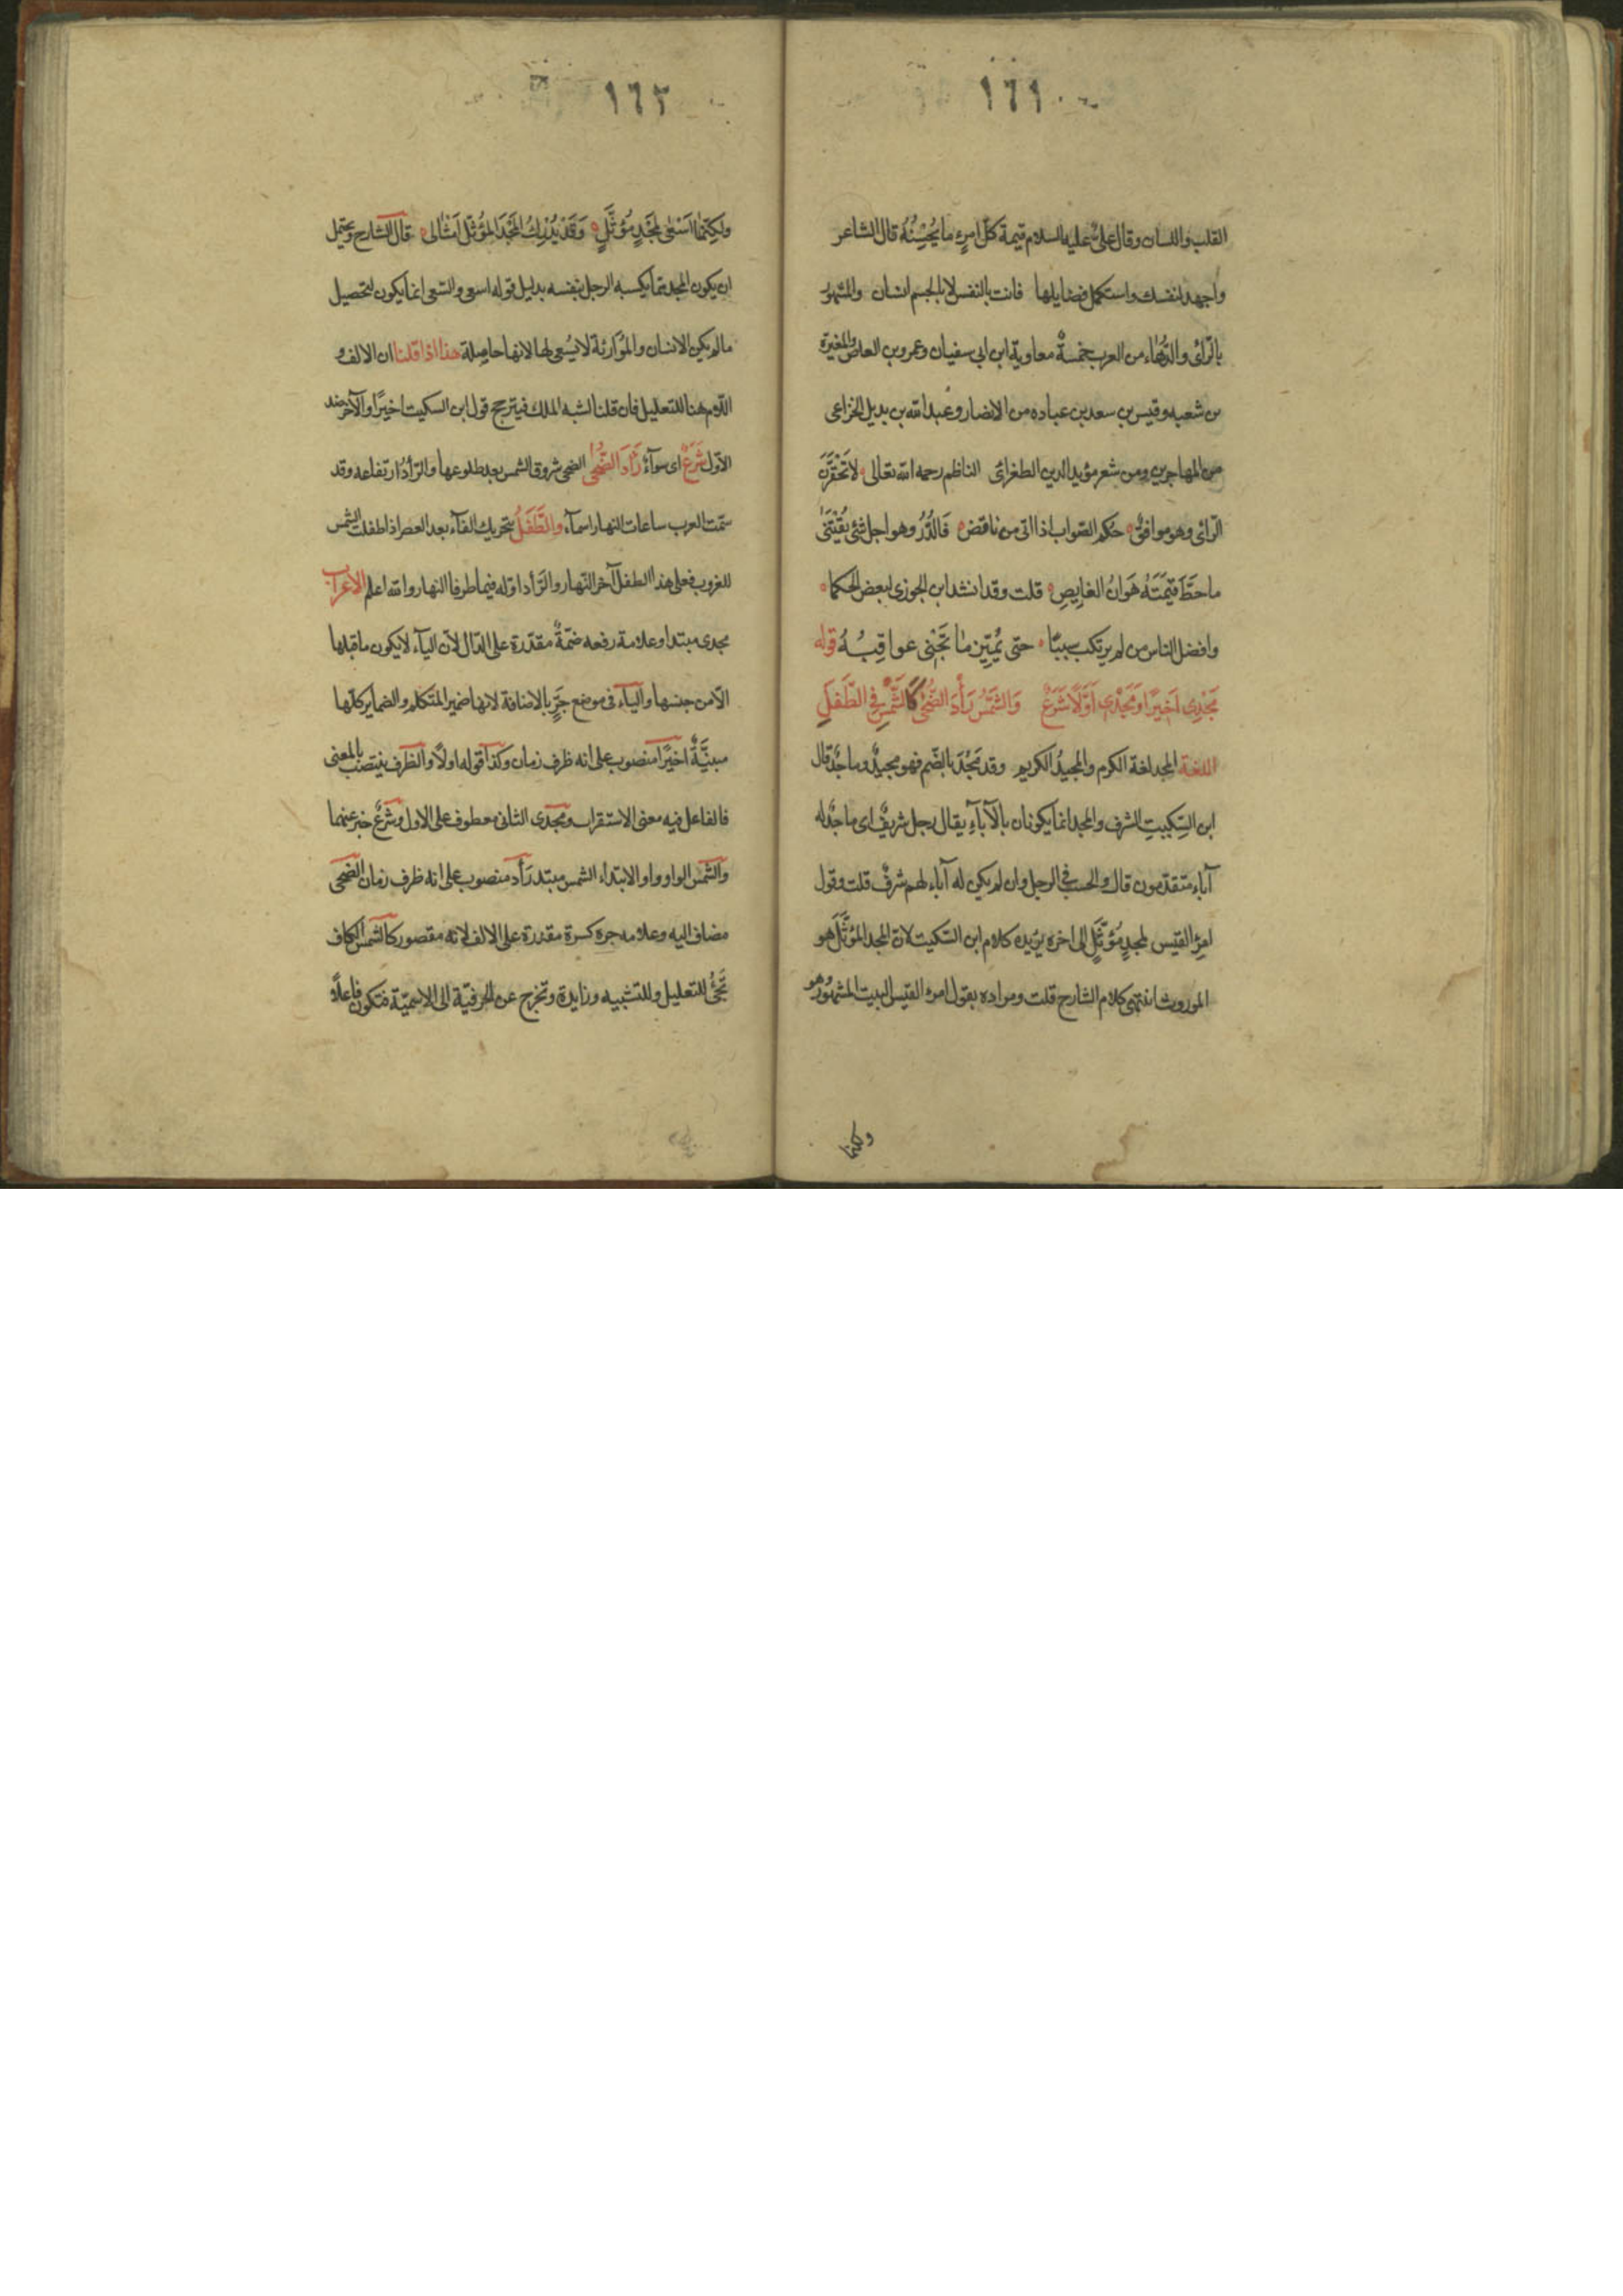 ١٦١
القلب واللسان وقال علىّ عليه السلام قيمة كلّ امرءٍ ما يُحْسِنُهُ قال الشاعر
واجهد لنفسك واستكمل فضايلها فانت بالنفس لا بالجسم انسان والمشهور
بالرّائى والدّهاء من العرب خمسةٌ معاوية ابن ابى سفيان وعمرو بن العاص والمغيرة
بن شعبه وقيس بن سعد بن عباده من الانصار وعبد الله بن بديل الخزاعى
من المهاجرين ومن شعر مؤيد الدين الطغرائى الناظم رحمه الله تعالى لا تَحْقِرَنَّ
الرّائى وهو موافقٌ حُكم الصّواب اذا اتى من ناقص فَالدُّرُ وهو اجل شئ يُقْتَنَى
ما حَطَّ قيْمَتَهُ هَوَانُ الغايِصِ قلت وقد انشد ابن الجوزى لبعض الحكما
وافضل الناس من لم يرتكب سببًا حتى يُميّز ما تَجْنِى عواقِبُهُ قوله
مَجْدِى اَخيرًا وَمَجْدِى اَوَّلًا شَرَعٌ وَالشَّمْسُ رَأْدَ الضُّحَى كَالشَّمْسِ فِى الطَّفَلِ
اللغة المجد لغة الكرم والمجيدُ الكريم وقد مَجُدَ بالضّم فهو مجيدٌ وماجدٌ قال
ابن السِّكيتِ الشرف والمجد انما يكونان بالآباءِ يقال رجل شريفٌ اى ماجدٌ له
آباء متقدّمون قال والحسب فى الرجل وان لم يكن له آباء لهم شرفٌ قلت وقول
امرِء القيس لمجدٍ مُؤَثَّلٍ الى اخره يؤيده كلام ابن السّكيت لانّ المجد المؤثّل هو
الموروث انتهى كلام الشارح قلت ومراده بقول امرء القيس البيت المشهور وهو
ولكنما
١٦٢
ولكِنّما اَسْعَى لمَجْدٍ مُؤَثَّلٍ وَقَدْ يُدْرِكُ المَجْدَ المؤثّل اَمْثَالى قال الشارح ويحتمل
ان يكون المجد مما يكسبه الرجل بنفسه بدليل قوله اسعى والسّعى انما يكون لتحصيل
ما لم يكن الانسان والمؤارثة لا يسُعى لها لانها حاصِلة هذا اذا قلنا ان الالف و
اللّام هنا للتعليل فان قلنا لشبه الملك فيترجح قول ابن السكيت اخيرًا والآخر ضد
الاوّل شَرَعٌ اى سوآءٌ رَأْدَ الضُّحى الضحى شروق الشمس بعد طلوعها والرّأدُ ارتفاعه وقد
سمّت العرب ساعات النهار اسمآء والطَّفَلُ بتحريك الفآء بعد العصر اذا طفلت الشمس
للغروب فعلى هذا الطفل آخر النّهار والرّأد اوّله فيهما طرفا النهار والله اعلم الاعراب
مجدى مبتدا وعلامة رفعه ضمّةٌ مقدّرة على الدّال لانّ اليآء لا يكون ما قبلها
الّا من جنسها واليآء فى موضع جَرٍّ بالاضافة لانها ضمير المتكلم والضماير كلّها
مبنيَّةٌ اخيًرا منصوب على انه ظرف زمان وكذا قوله اولًا والظرف ينتصب بالمعنى
فالفاعل فيه معنى الاستقرار ومجدى الثانى معطوف على الاول وشَرَعٌ خبر عنهما
والشمس الواو واو الابتداء الشمس مبتد رَأد منصوب على انه ظرف زمان الضحى
مضاف اليه وعلامه جره كسرة مقدرة على الالف لانه مقصور كالشمس الكاف
تَجئُ للتعليل وللتشبيه وزايدة وتخرج عن الحرفيّة الى الاسميّة فتكون فاعلًا